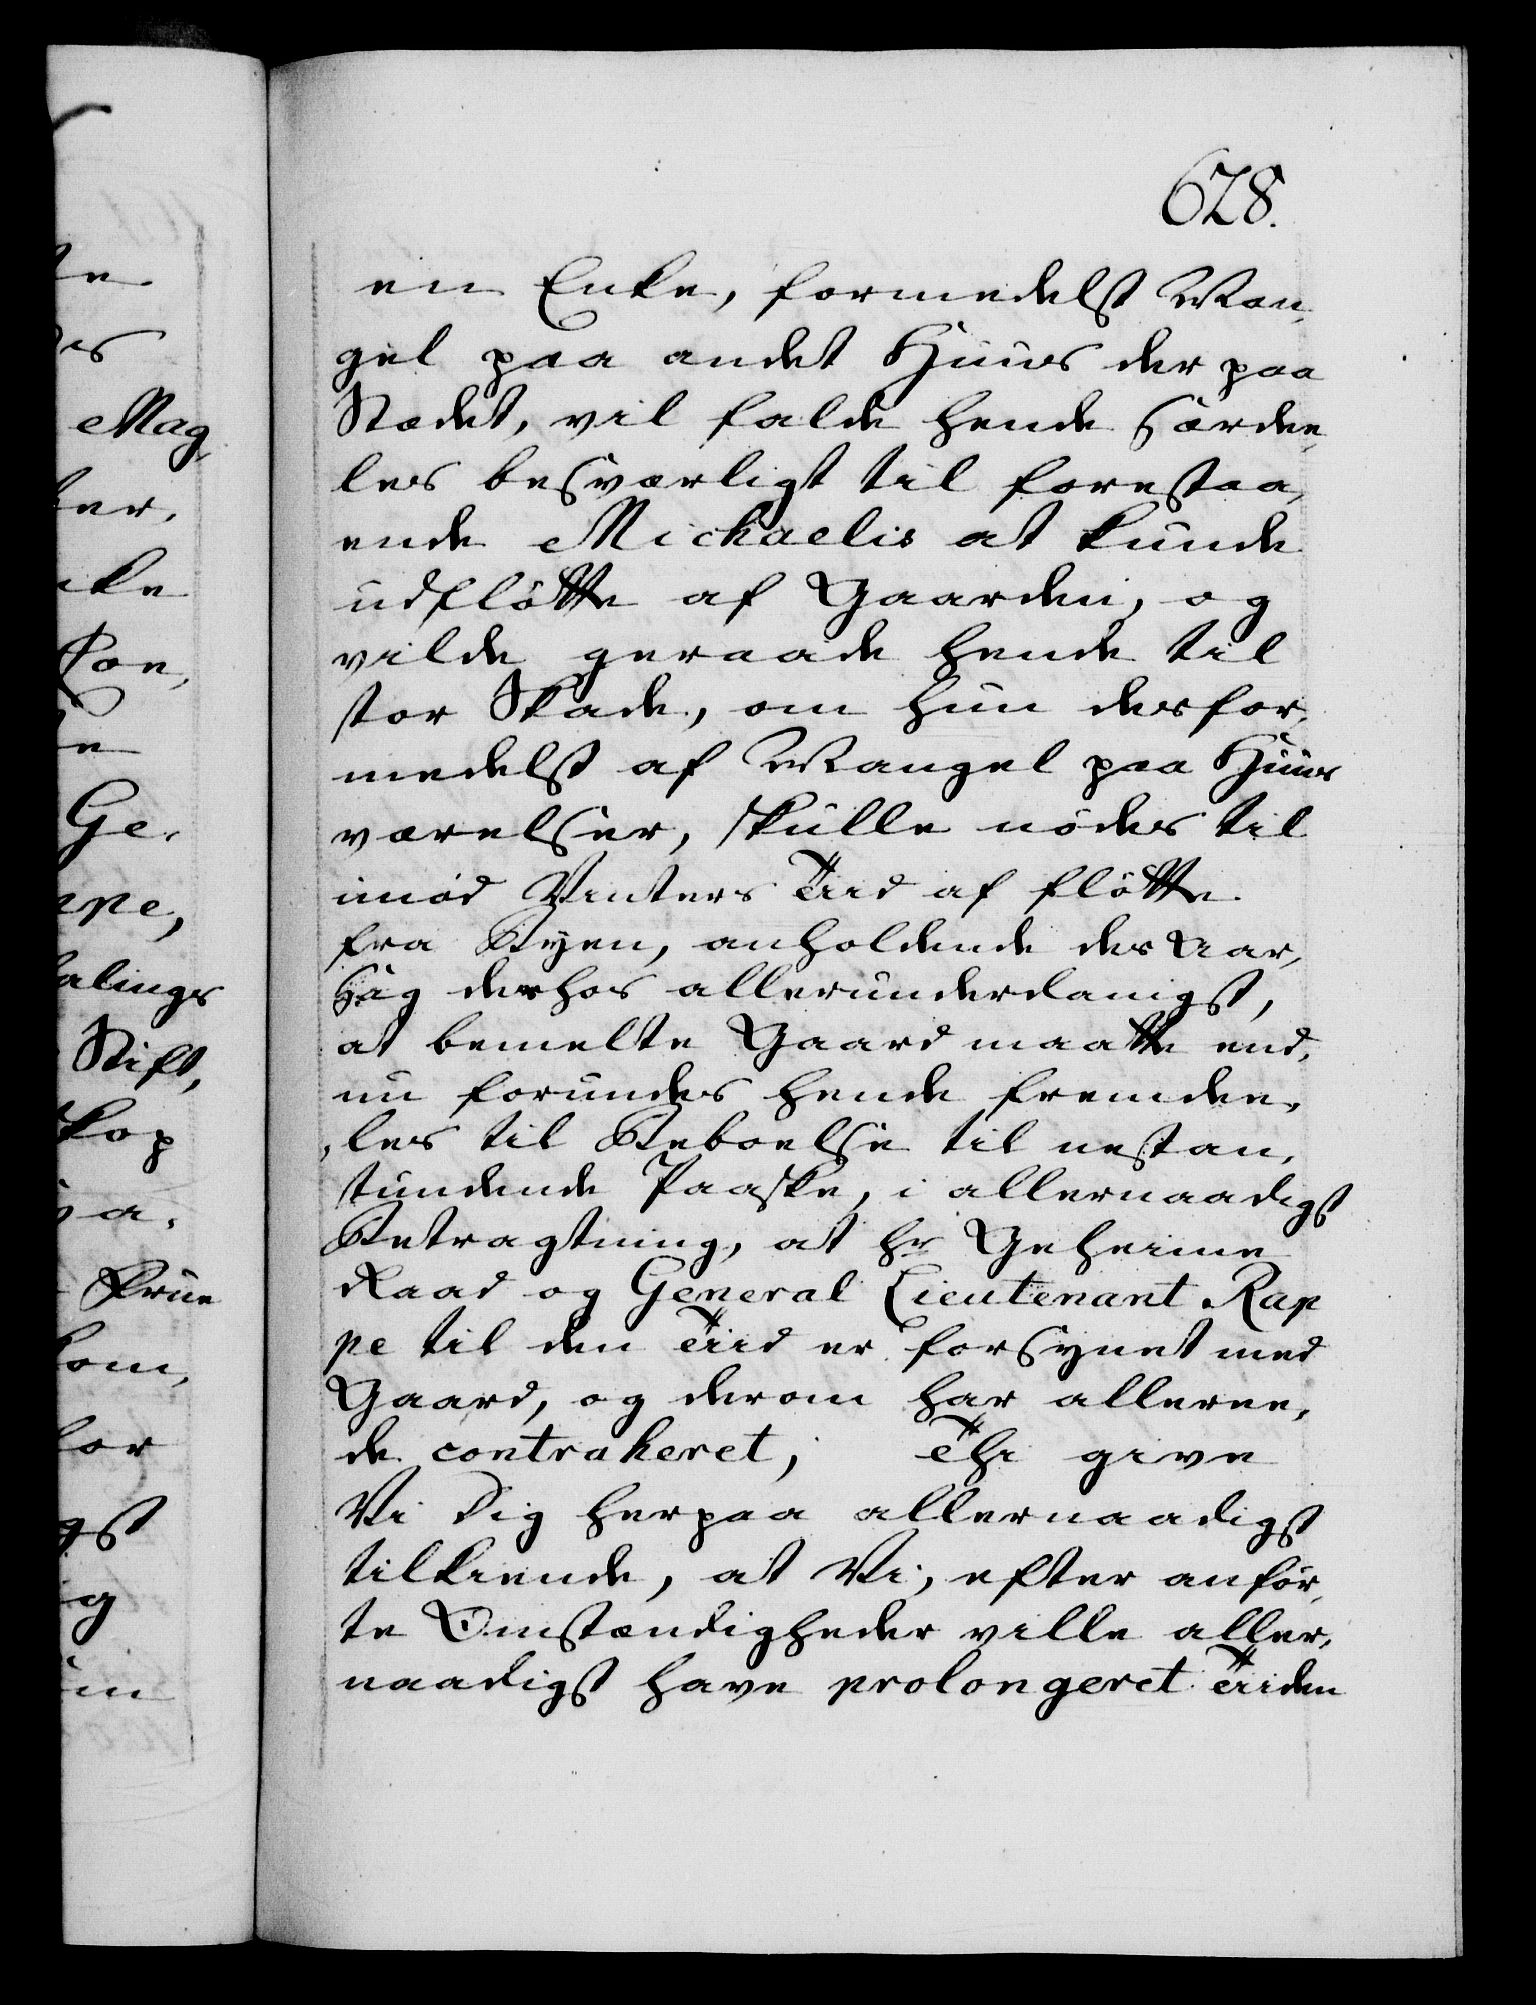 628.
en Enke, formedelst Man,
gel paa andet Huus der paa
Stædet, vil falde hende særdee,
les besværligt til forestaa,
ende Michaelis at kunde
udflötte af Gaarden, og
vilde geraade hende til
stor Skade, om hun desfor,
medelst af Mangel paa Huus
værelser, skulle nödes til
imod Vinters Tiid af flötte
fra Byen, anholdende des Aar,
sag derhos allerunderdanigst,
at bemelte Gaard maatte end,
nu forundes hende fremdee,
les til Beboelse til nestan,
stundende Paaske, i allernaadigst
Betragtning, at hr Geheime
Raad og General Lieutenant Rap
pe til den Tiid er forsynet med
Gaard, og derom har alleree,
de contraheret; Thi give
Vi Dig herpaa allernaadigst
tilkiende, at Vi, efter anför,
te Omstændigheder ville aller,
naadigst have prolongeret Tiiden
Mag,
Ge,
ppe,
alings
Stift,
Frue